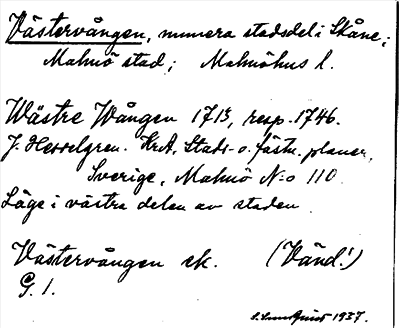 Västervången, numera stadsdel i Skåne;
Malmö stad; Malmöhus l.
Wästre Wången 1713, resp. 1746.
J. Hesselgren. KrA, Stads- o. fästn. planer,
Sverige, Malmö N:o 110.
Läge i västra delen av staden
Västervången ek. (Vänd!)
G. 1.
1937.